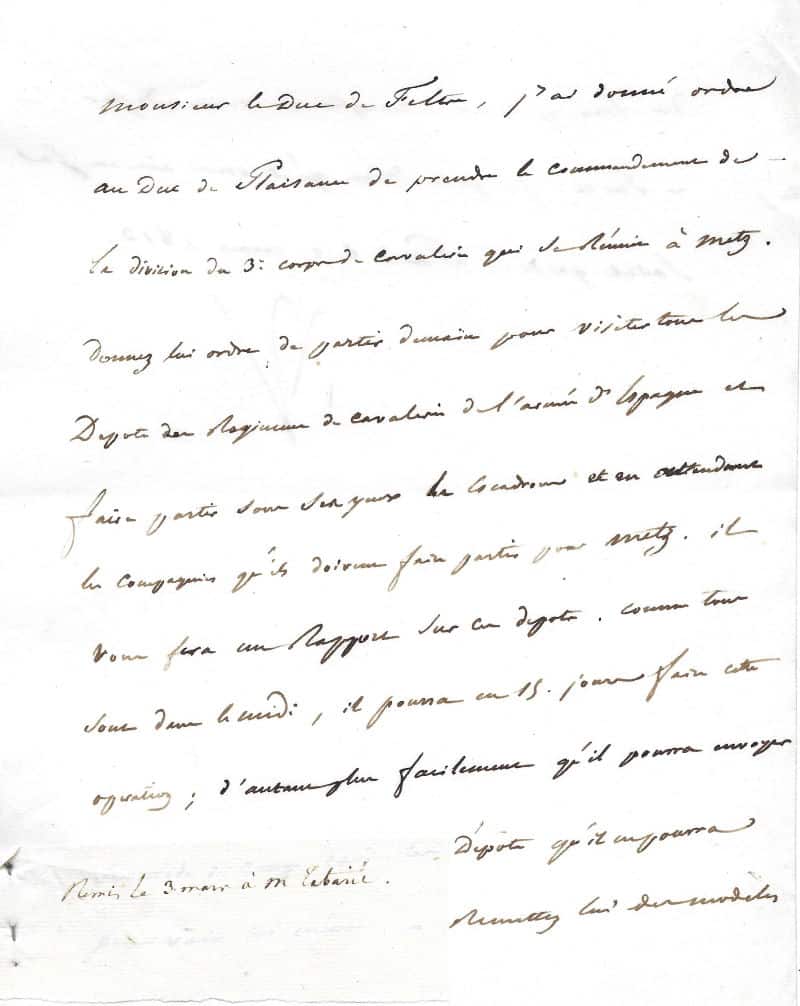 Monsieur le Duc de Feltre, j'ai donné ordre
au Duc de Plaisance de prendre le commandement de
la division du 3e corps de cavalerie qui se Réunie à Metz.
donnez lui ordre de partir demain pour visiter tous les
Depots des Regimens de cavalerie de l'armée d'Espagne et
faire partir sous ses yeux les Escadrons et en attendant
les compagnies qu'ils doivent faire partir pour Metz. il
vous fera un Rapport sur ces depots. comme tous
sont dans le midi, il pourra en 15. jours faire cette
operation; d'autant plus facilement qu'il pourra envoyer
Dépots qu'il ne pourra
Remettez lui des modèles
Remis le 3 mars à M Tabarié.